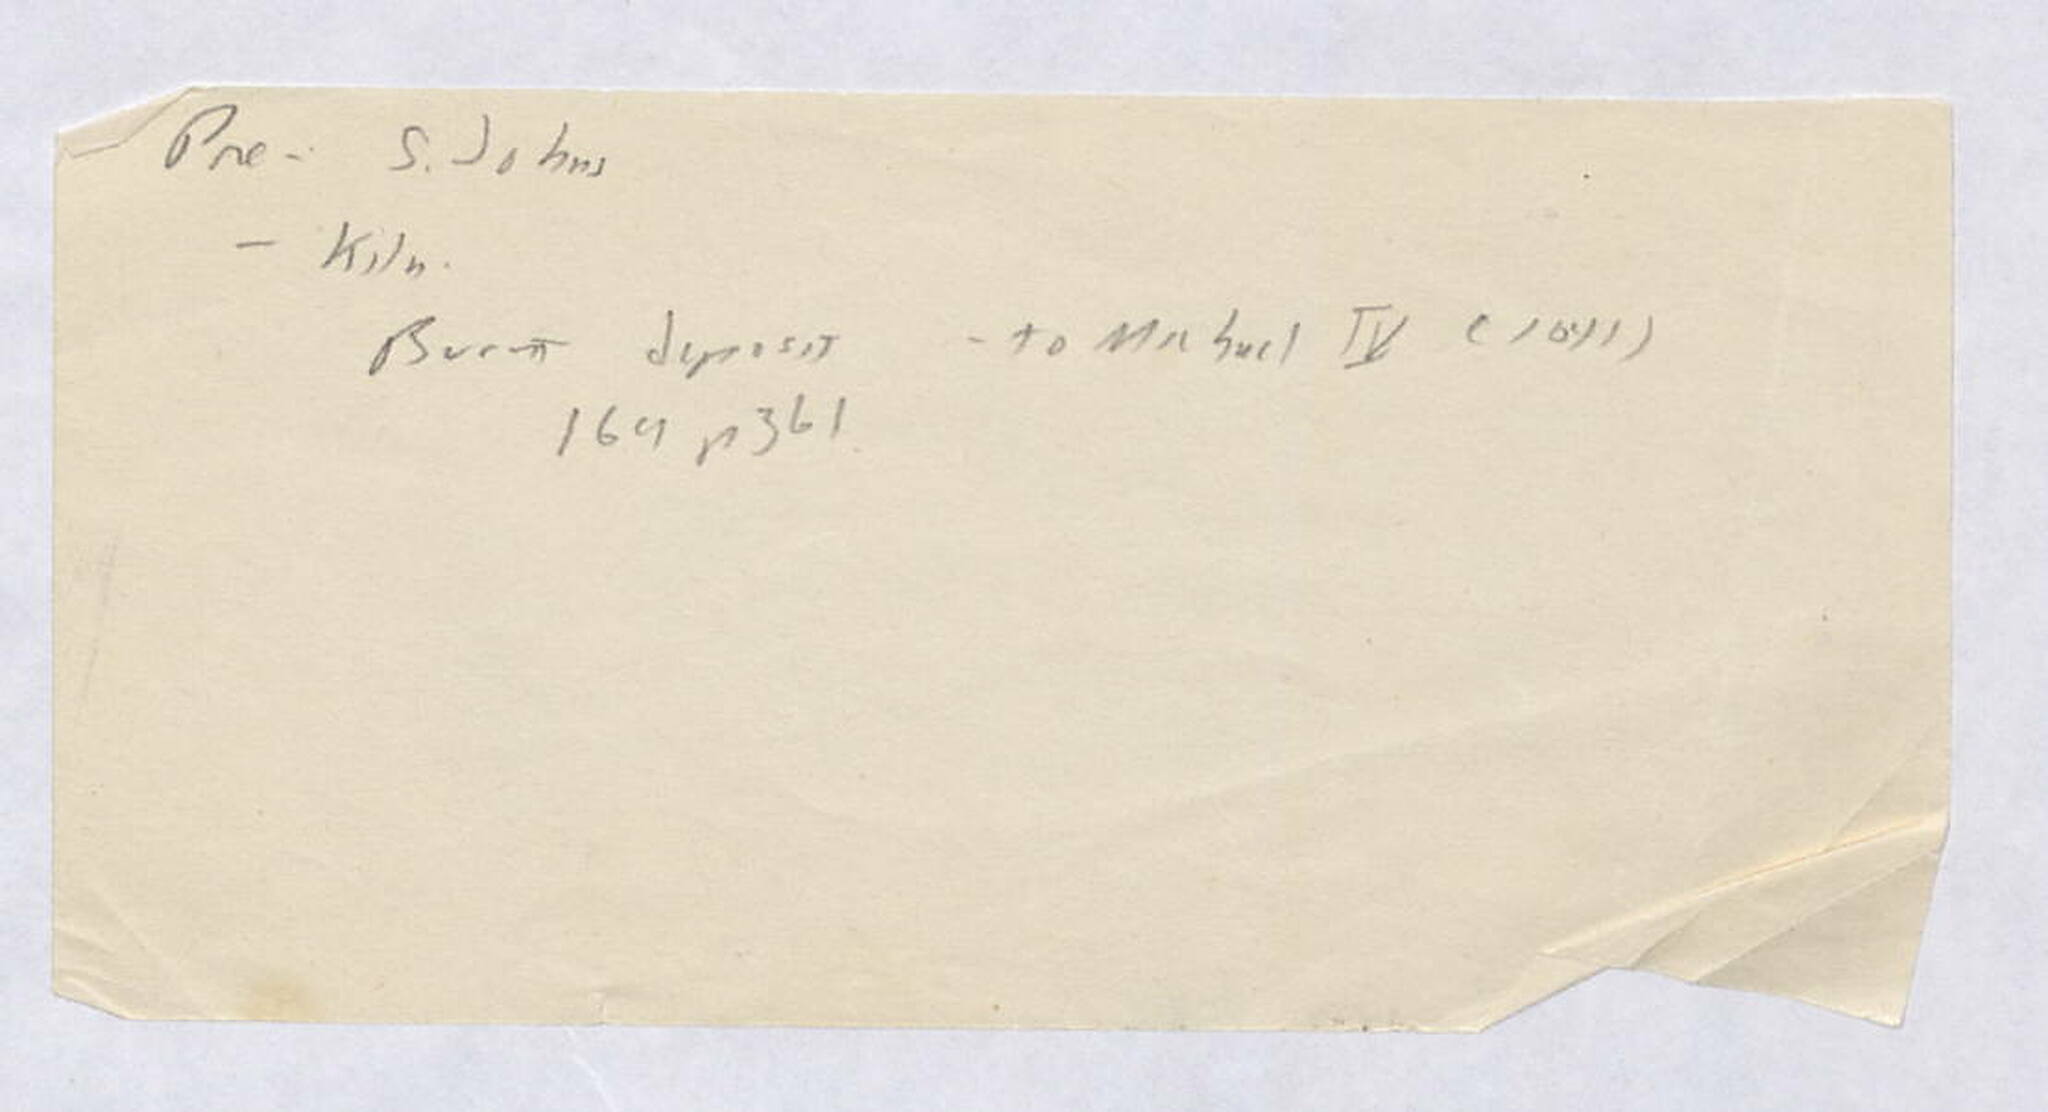 Pre- S. Johns
- Kiln.
Burnt deposit - to Michael IV (1041)
169 p361